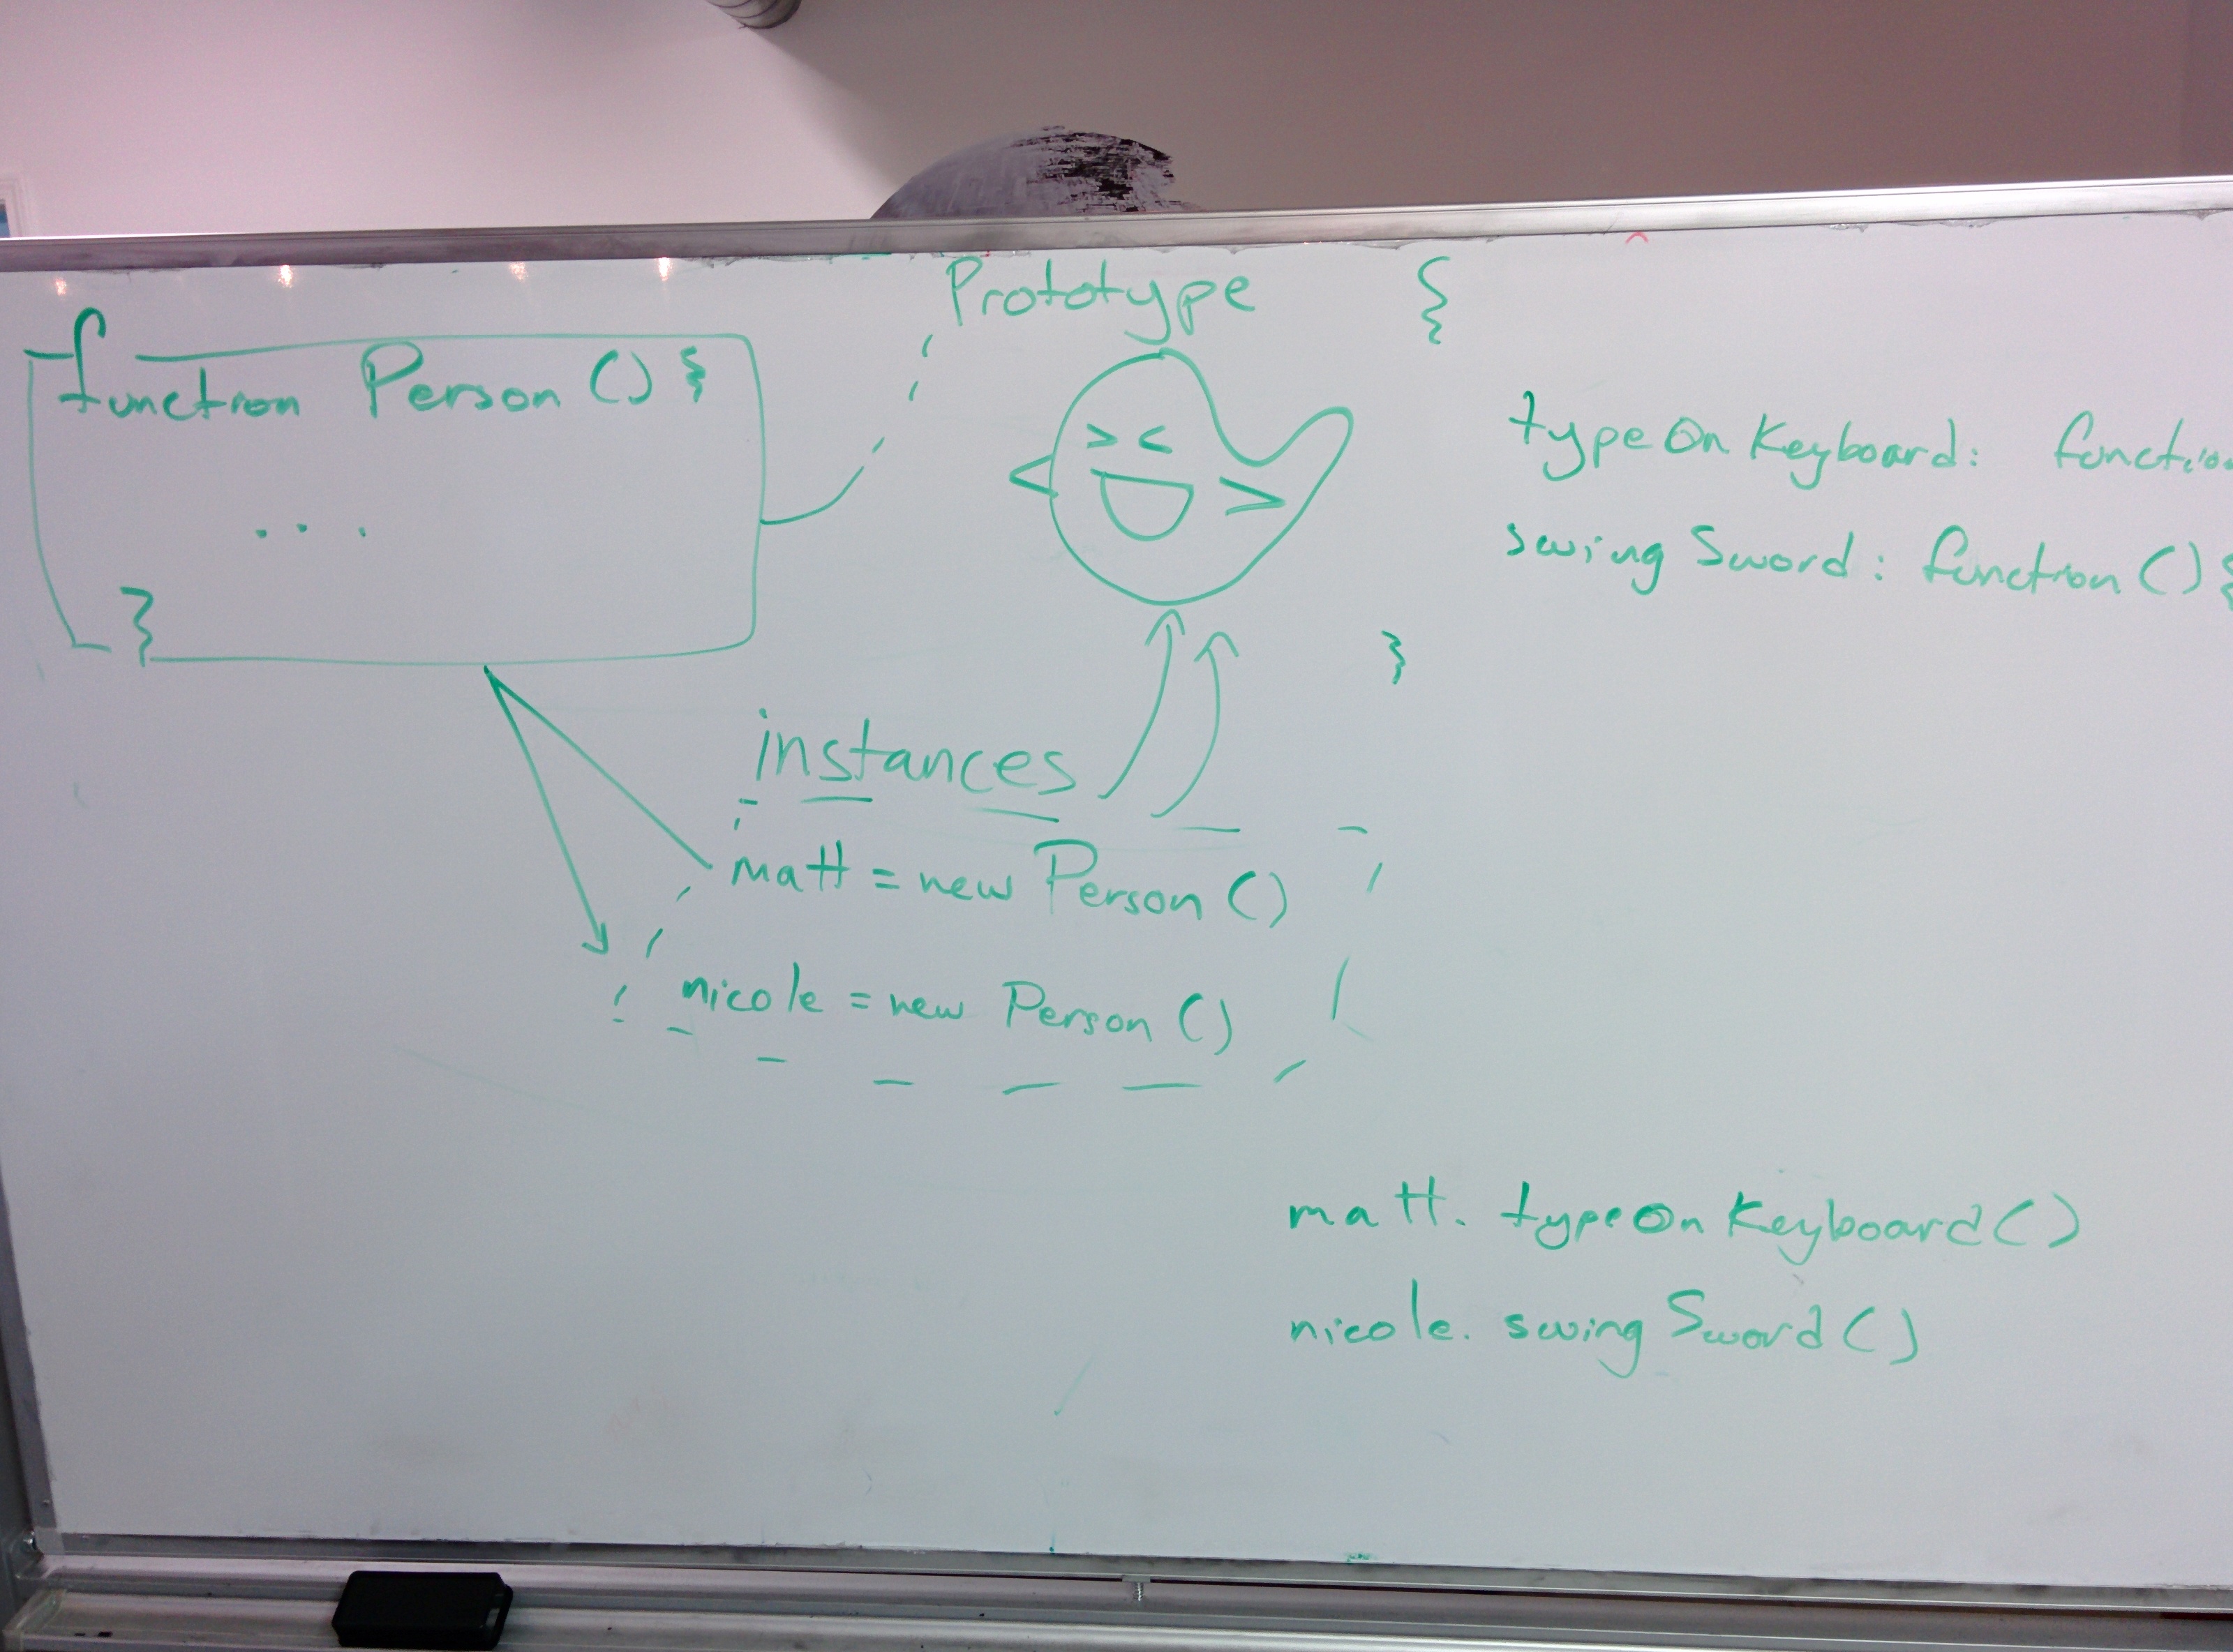 function Person () {
. . .
}
Prototype {
typeOnKeyboard: functio
swingSword: function () {
}
instances
matt = new Person ()
nicole = new Person ()
matt. typeOnKeyboard ()
nicole. swingSword ()